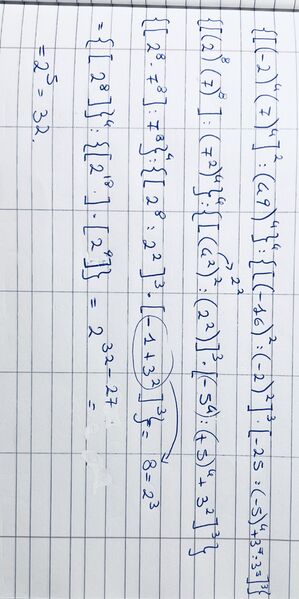 {[(-2)⁴(7)⁴]² : (49)⁴}⁴ : {[(-16)² : (-2)²]³ · [-25 : (-5)⁴ + 3⁷ : 3⁵]³}
2²
{[(2)⁸(7)⁸] : (7²)⁴}⁴ : {[(4²)² : (2²)]³ · [-5⁴ : (+5)⁴ + 3²]³}
{[2⁸ · 7⁸] : 7⁸}⁴ : {[2⁸ : 2²]³ · [-1 + 3²]³} = 8 = 2³
= {[2⁸]}⁴ : {[2¹⁸] · [2⁹]} = 2³²⁻²⁷ =
= 2⁵ = 32.